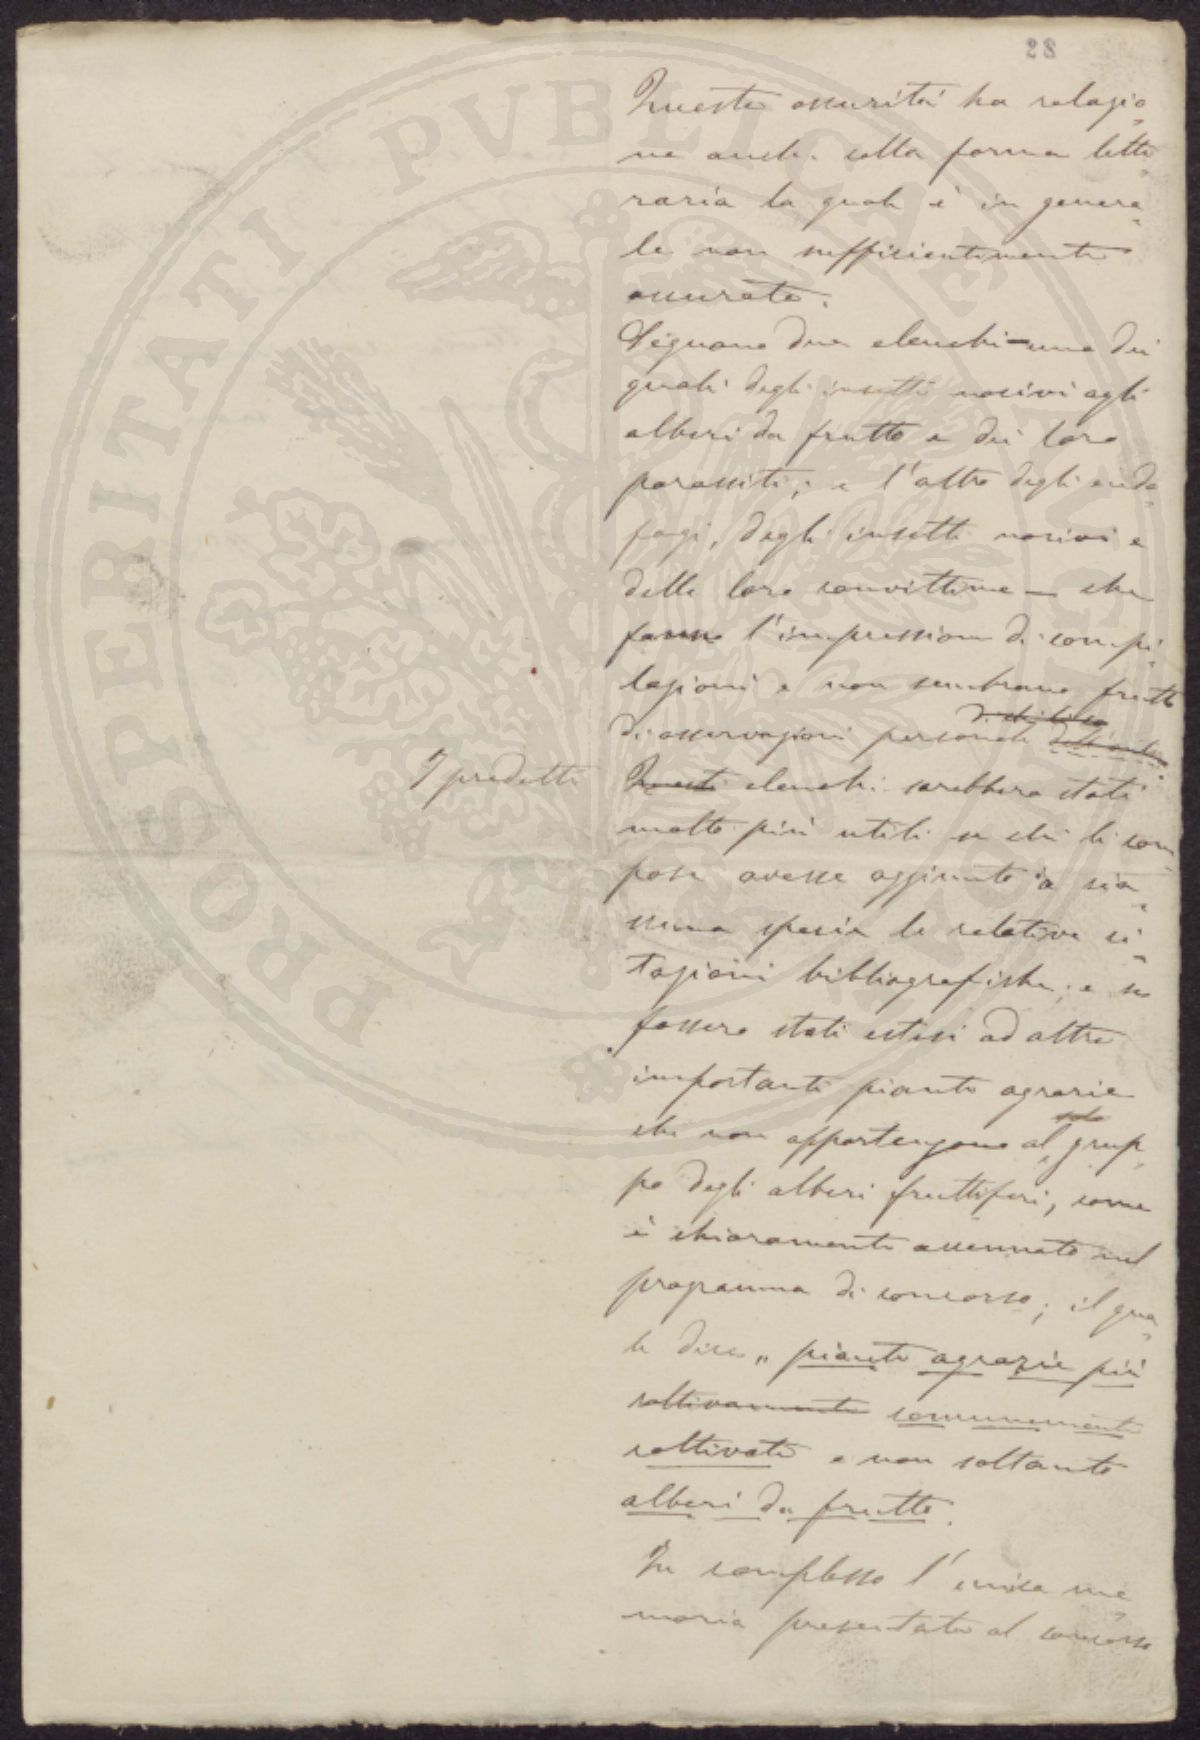 28
Questa oscurità ha relazio-
ne anche colla forma lette-
raria la quale è in genera-
le non sufficientemente
accurata.
Seguono due elenchi – uno dei
quali degli insetti nocivi agli
alberi da frutto e dei loro
parassiti; e l'altro degli endo-
fagi, degli insetti nocivi e
delle loro convittime — che
fanno l'impressione di compi-
lazioni e non sembrano frutto
di osservazioni personali
I predetti
Questi elenchi sarebbero stati
molto più utili se chi li com-
pose avesse aggiunto a cia-
scuna specie le relative ci-
tazioni bibliografiche; e se
fossero stati estesi ad altre
importanti piante agrarie
che non appartengono al solo grup-
po degli alberi fruttiferi, come
è chiaramente accennato nel
programma di concorso; il qua-
le dice „ piante agrarie più
coltivamente comunemente
coltivate e non soltanto
alberi da frutto.
In complesso l'unica me-
moria presentata al concorso
PROSPERITATI PVBLICAE AVGENDAE